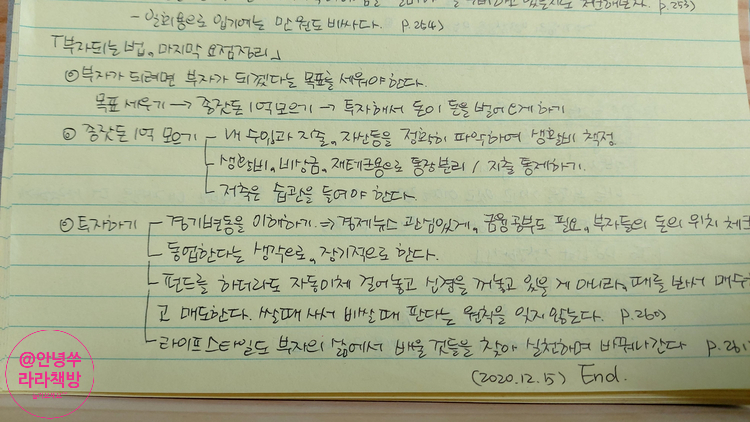 - 일회용으로 입기에는 만원도 비싸다. p.254)
「부자되는 법, 마지막 요점정리」
◎부자가 되려면 부자가 되겠다는 목표를 세워야한다.
목표 세우기 → 종잣돈 1억모으기 → 투자해서 돈이 돈을 벌어오게 하기
◎ 종잣돈 1억 모으기 - 내 수입과 지출, 자산등을 정확히 파악하여 생활비 책정
- 생활비, 비상금, 재테크용으로 통장분리 / 지출 통제하기.
- 저축은 습관을 들여야 한다.
◎ 투자하기 - 경기변동을 이해하기 ⇒ 경제뉴스 관심있게, 금융공부도 필요, 부자들의 돈의 위치 체크
- 동업한다는 생각으로, 장기적으로 한다.
- 펀드를 하더라도 자동이체 걸어놓고 신경을 꺼놓고 있을 게 아니라, 때를 봐서 매수하
고 매도한다. 쌀때 사서 비쌀 때 판다는 원칙을 잊지 않는다. p.260)
- 라이프스타일도 부자의 삶에서 배울 것들을 찾아 실천하며 바꿔나간다 p.261
(2020.12.15) End.
@안녕쑤
라라책방